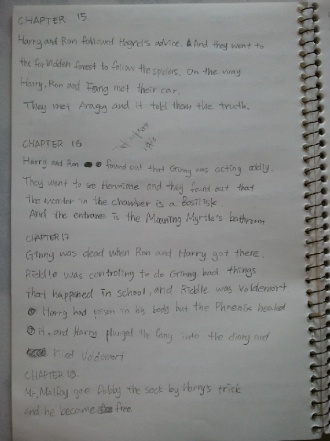 CHAPTER 15
Harry and Ron followed Hagrid's advice. And they went to
the forbidden forest to follow the spiders. On the way
Harry, Ron and Fang met their car.
They met Aragy and it told them the truth.
CHAPTER 16
Harry and Ron found out that Ginny was acting oddly.
They went to see Hermione and they found out that
the monster in the chamber is a Basilisk
And the entrance is the Moaning Myrtle's bathroom
CHAPTER 17
Ginny was dead when Ron and Harry got there.
Riddle was controling to do Ginny bad things
that happened in school, and Riddle was Voldemort
Harry had poison in his body but the Phoenix healed
it, and Harry plunged the fang into the diary and
Voldemort
CHAPTER 18
Mr. Malfoy gave Dobby the sock by Harry's trick
And he became free